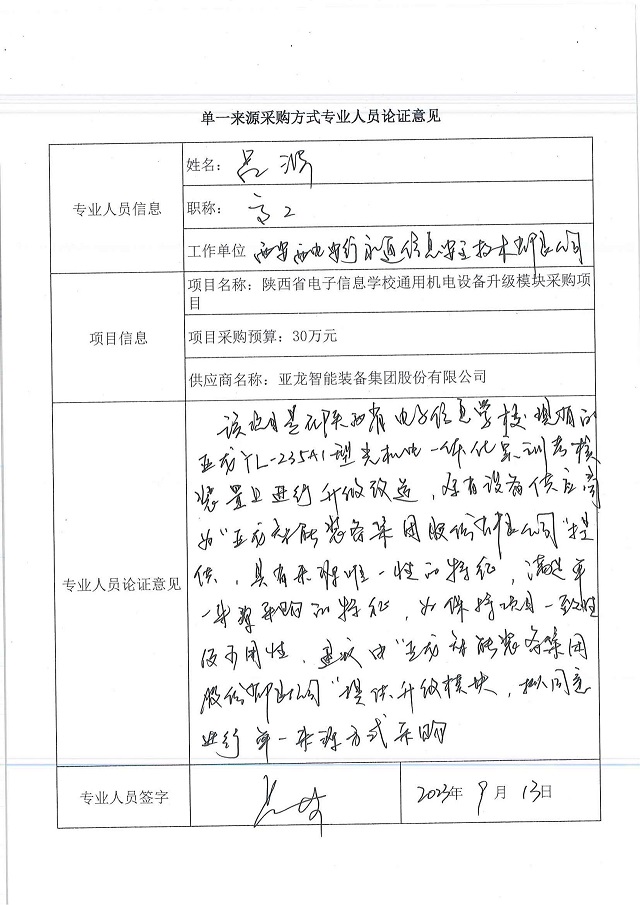 单一来源采购方式专业人员论证意见
专业人员信息
姓名：吕
职称：高工
工作单位 西安西电 信息安全技术有限公司
项目信息
项目名称：陕西省电子信息学校通用机电设备升级模块采购项
目
项目采购预算：30万元
供应商名称：亚龙智能装备集团股份有限公司
专业人员论证意见
该项目是对陕西省电子信息学校现有的
亚龙YL-235A1型光机电一体化实训考核
装置上进行升级改造，原有设备供应商
为"亚龙智能装备集团股份有限公司"提
供，具有来源唯一性的特征，满足单
一来源采购的特征，为保持项目一致性
及 用性，建议由"亚龙智能装备集团
股份有限公司"提供升级模块，拟同意
进行单一来源方式采购
专业人员签字
2023年 9月 13日